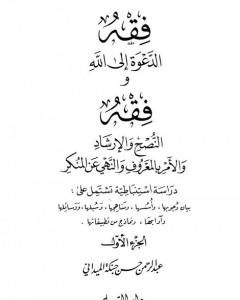 فقه
الدعوة إلى الله
و
فقه
النصح والإرشاد
والأمر بالمعروف والنهي عن المنكر
دراسة استنباطية تشتمل على:
بيان وجوبها، وأسسها، ومناهجها، وسبلها، ووسائلها
وآدابها، ونماذج من تطبيقاتها
الجزء الأول
عبد الرحمن حسن حبنكة الميداني